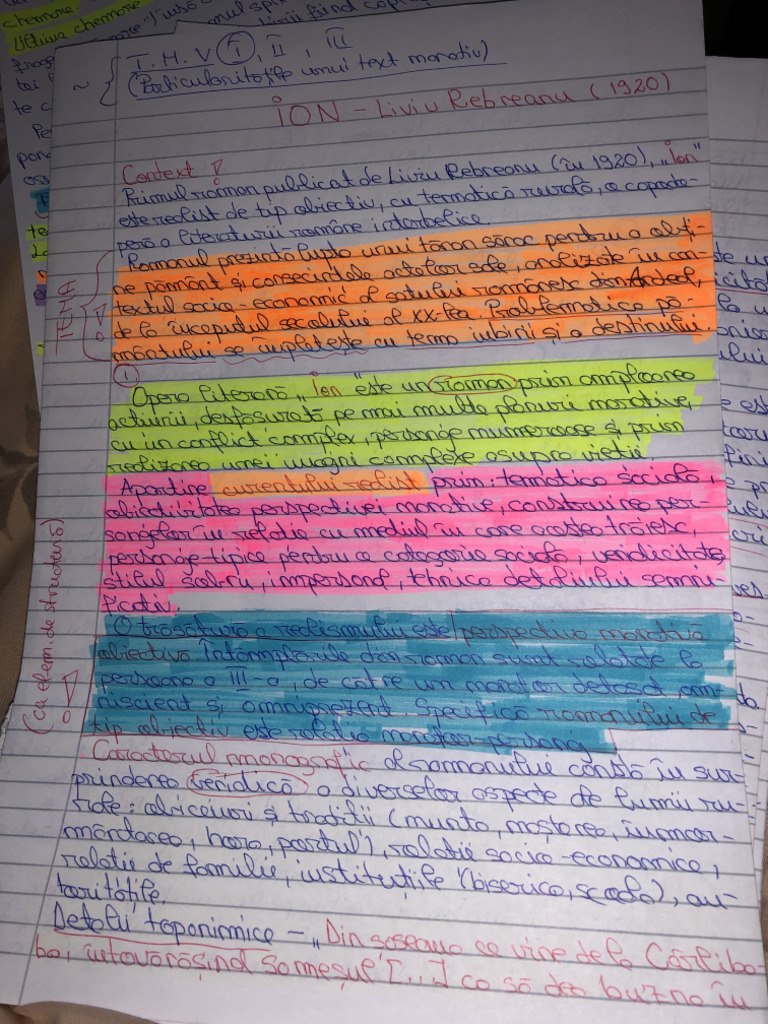 T.M.V I, II, III
~ { (Particularitățile unui text narativ)
ION – Liviu Rebreanu (1920)
Context !
Primul roman publicat de Liviu Rebreanu (în 1920), „Ion"
este realist de tip obiectiv, cu tematică rurală, o capodo-
peră a literaturii române interbelice
TEMA !
Romanul prezintă lupta unui țăran sărac pentru a obți-
ne pământ și consecințele actelor sale, analizate în con-
textul socio-economic al satului românesc din Ardeal,
de la începutul secolului al XX-lea. Problematica pă-
mântului se împletește cu tema iubirii și a destinului.
1
Opera literară „Ion" este un roman prin amploarea
acțiunii, desfășurată pe mai multe planuri narative,
cu un conflict complex, personaje numeroase și prin
realizarea unei imagini complexe asupra vieții
Aparține curentului realist prin: tematica socială,
obiectivitatea perspectivei narative, construirea per-
sonajelor în relație cu mediul în care acestea trăiesc,
personaje-tipice pentru o categorie socială, veridicitate,
stilul sobru, impersonal, tehnica detaliului semni-
ficativ.
(ca elem. de structură) !
O trăsătură a realismului este perspectiva narativă
obiectivă Întâmplările din roman sunt relatate la
persoana a III-a, de către un narator detașat, om-
niscient și omniprezent. Specifică romanului de
tip obiectiv este relația narator-personaj
Caracterul monografic al romanului constă în sur-
prinderea veridică a diverselor aspecte ale lumii ru-
rale: obiceiuri și tradiții (nunta, nașterea, înmor-
mântarea, hora, portul), relații socio-economice,
relații de familie, instituțiile (biserica, școala), au-
toritățile.
Detalii toponimice – „Din șoseaua ce vine de la Cârliba-
ba, întovărășind Someșul [...] ca să dea buzna în